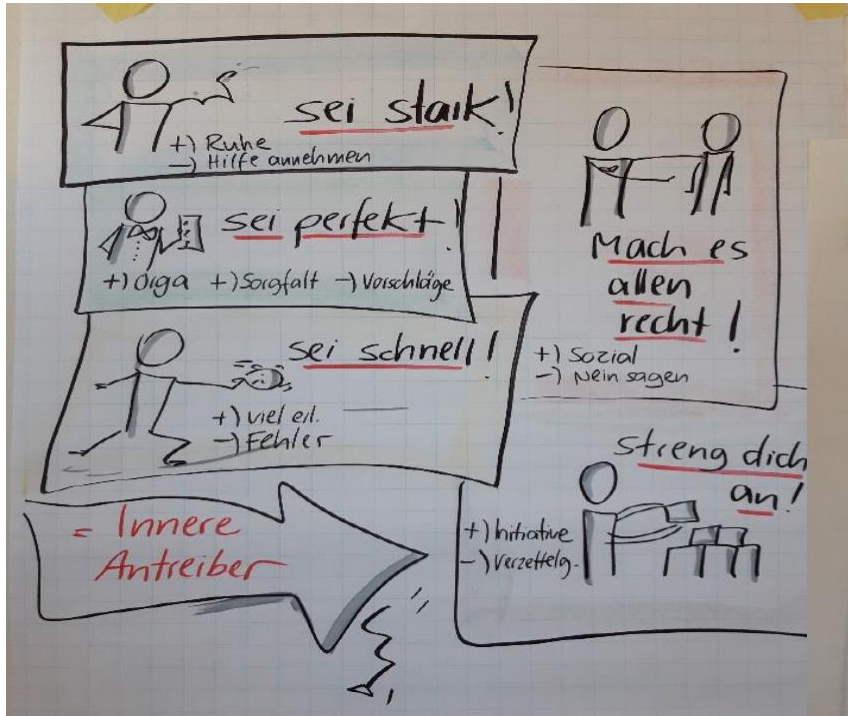 sei stark!
+) Ruhe
-) Hilfe annehmen
sei perfekt!
+) Orga +) Sorgfalt -) Vorschläge
sei schnell!
+) viel erl.
-) Fehler
= Innere
Antreiber
Mach es
allen
recht!
+) Sozial
-) Nein sagen
streng dich
an!
+) Initiative
-) Verzettelg.